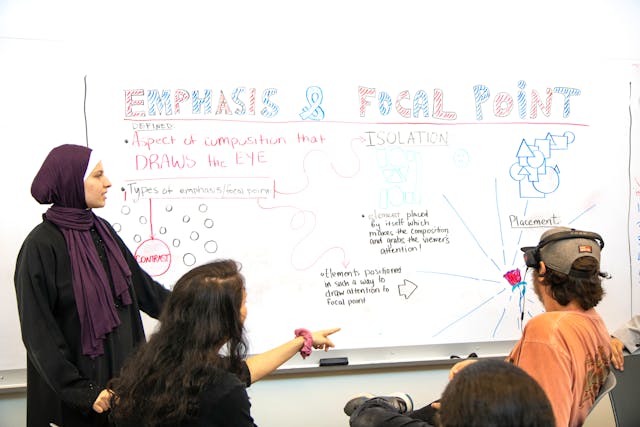 EMPHASIS & FOCAL POINT
DEFINED:
• ASPECT OF COMPOSITION THAT
DRAWS the EYE
• Types of emphasis/focal point
CONTRAST
ISOLATION
• element placed
by itself which
makes the composition
and grabs the viewer's
attention!
• Elements positioned
in such a way to
draw attention to
focal point
Placement